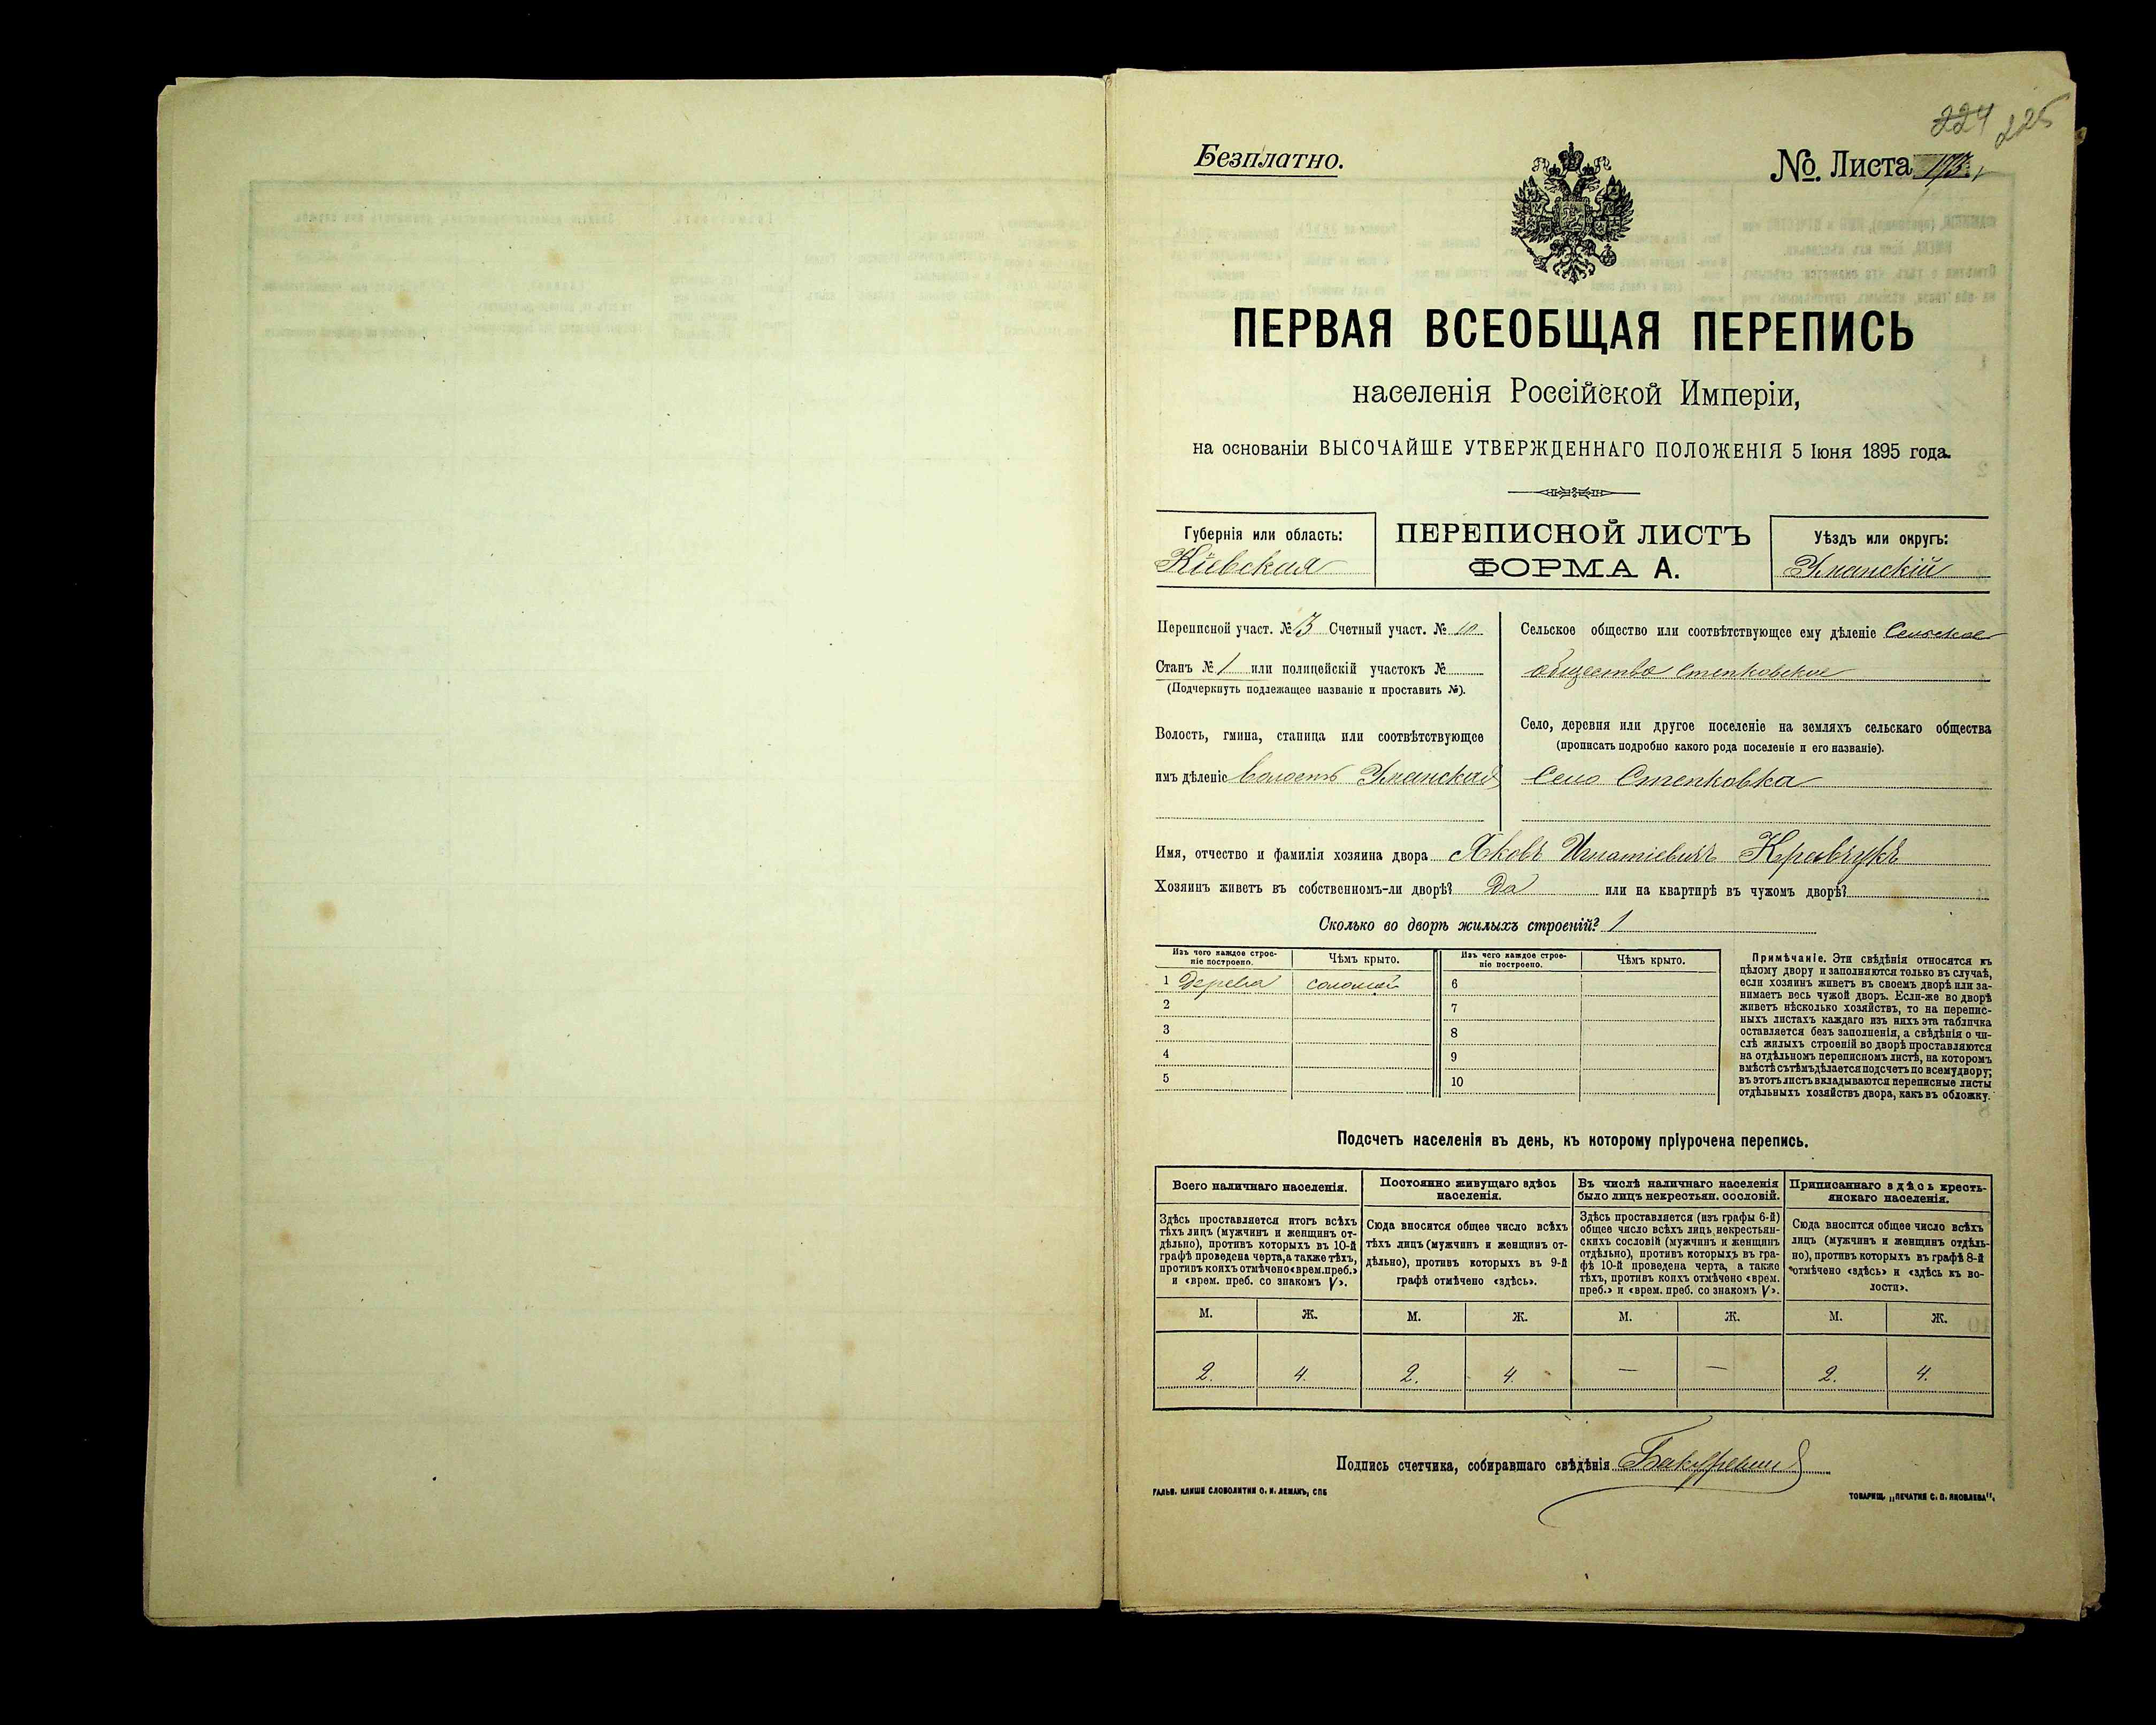 224 225
Безплатно.
№. Листа 173.
ПЕРВАЯ ВСЕОБЩАЯ ПЕРЕПИСЬ
населенія Россійской Имперіи,
на основаніи ВЫСОЧАЙШЕ УТВЕРЖДЕННАГО ПОЛОЖЕНІЯ 5 Іюня 1895 года.
Губернія или область:
Кіевская
ПЕРЕПИСНОЙ ЛИСТЪ
ФОРМА А.
Уѣздъ или округъ:
Уманскій
Переписной участ. № 3 Счетный участ. № 10
Станъ № 1 или полицейскій участокъ №
(Подчеркнуть подлежащее названіе и проставить №).
Волость, гмина, станица или соотвѣтствующее
имъ дѣленіе волость Уманская
Сельское общество или соотвѣтствующее ему дѣленіе Сельское
общество Степковское
Село, деревня или другое поселеніе на земляхъ сельскаго общества
(прописать подробно какого рода поселеніе и его названіе).
Село Степковка
Имя, отчество и фамилія хозяина двора Яковъ Игнатіевичъ Кравчукъ
Хозяинъ живетъ въ собственномъ-ли дворѣ? Да или на квартирѣ въ чужомъ дворѣ?
Сколько во дворѣ жилыхъ строеній? 1
Изъ чего каждое строе-
ніе построено.
Чѣмъ крыто.
Изъ чего каждое строе-
ніе построено.
Чѣмъ крыто.
1 Дерева соломой 6
2 7
3 8
4 9
5 10
Примѣчаніе. Эти свѣдѣнія относятся къ
цѣлому двору и заполняются только въ случаѣ,
если хозяинъ живетъ въ своемъ дворѣ или за-
нимаетъ весь чужой дворъ. Если-же во дворѣ
живетъ нѣсколько хозяйствъ, то на перепис-
ныхъ листахъ каждаго изъ нихъ эта табличка
оставляется безъ заполненія, а свѣдѣнія о чи-
слѣ жилыхъ строеній во дворѣ проставляются
на отдѣльномъ переписномъ листѣ, на которомъ
вмѣстѣ съ тѣмъ дѣлается подсчетъ по всему двору;
въ этотъ листъ вкладываются переписные листы
отдѣльныхъ хозяйствъ двора, какъ въ обложку.
Подсчетъ населенія въ день, къ которому пріурочена перепись.
Всего наличнаго населенія.
Здѣсь проставляется итогъ всѣхъ
тѣхъ лицъ (мужчинъ и женщинъ от-
дѣльно), противъ которыхъ въ 10-й
графѣ проведена черта, а также тѣхъ,
противъ коихъ отмѣчено «врем. преб.»
и «врем. преб. со знакомъ V».
Постоянно живущаго здѣсь
населенія.
Сюда вносится общее число всѣхъ
тѣхъ лицъ (мужчинъ и женщинъ от-
дѣльно), противъ которыхъ въ 9-й
графѣ отмѣчено «здѣсь».
Въ числѣ наличнаго населенія
было лицъ некрестьян. сословій.
Здѣсь проставляется (изъ графы 6-й)
общее число всѣхъ лицъ некрестьян-
скихъ сословій (мужчинъ и женщинъ
отдѣльно), противъ которыхъ въ гра-
фѣ 10-й проведена черта, а также
тѣхъ, противъ коихъ отмѣчено «врем.
преб.» и «врем. преб. со знакомъ V».
Приписаннаго здѣсь кресть-
янскаго населенія.
Сюда вносится общее число всѣхъ
лицъ (мужчинъ и женщинъ отдѣль-
но), противъ которыхъ въ графѣ 8-й
отмѣчено «здѣсь» и «здѣсь къ во-
лости».
М. Ж. М. Ж. М. Ж. М. Ж.
2. 4. 2. 4. — — 2. 4.
Подпись счетчика, собиравшаго свѣдѣнія
ГАЛЬВ. КЛИШЕ СЛОВОЛИТНИ О. И. ЛЕМАНЪ, СПБ
ТОВАРИЩ. „ПЕЧАТНЯ С. П. ЯКОВЛЕВА".